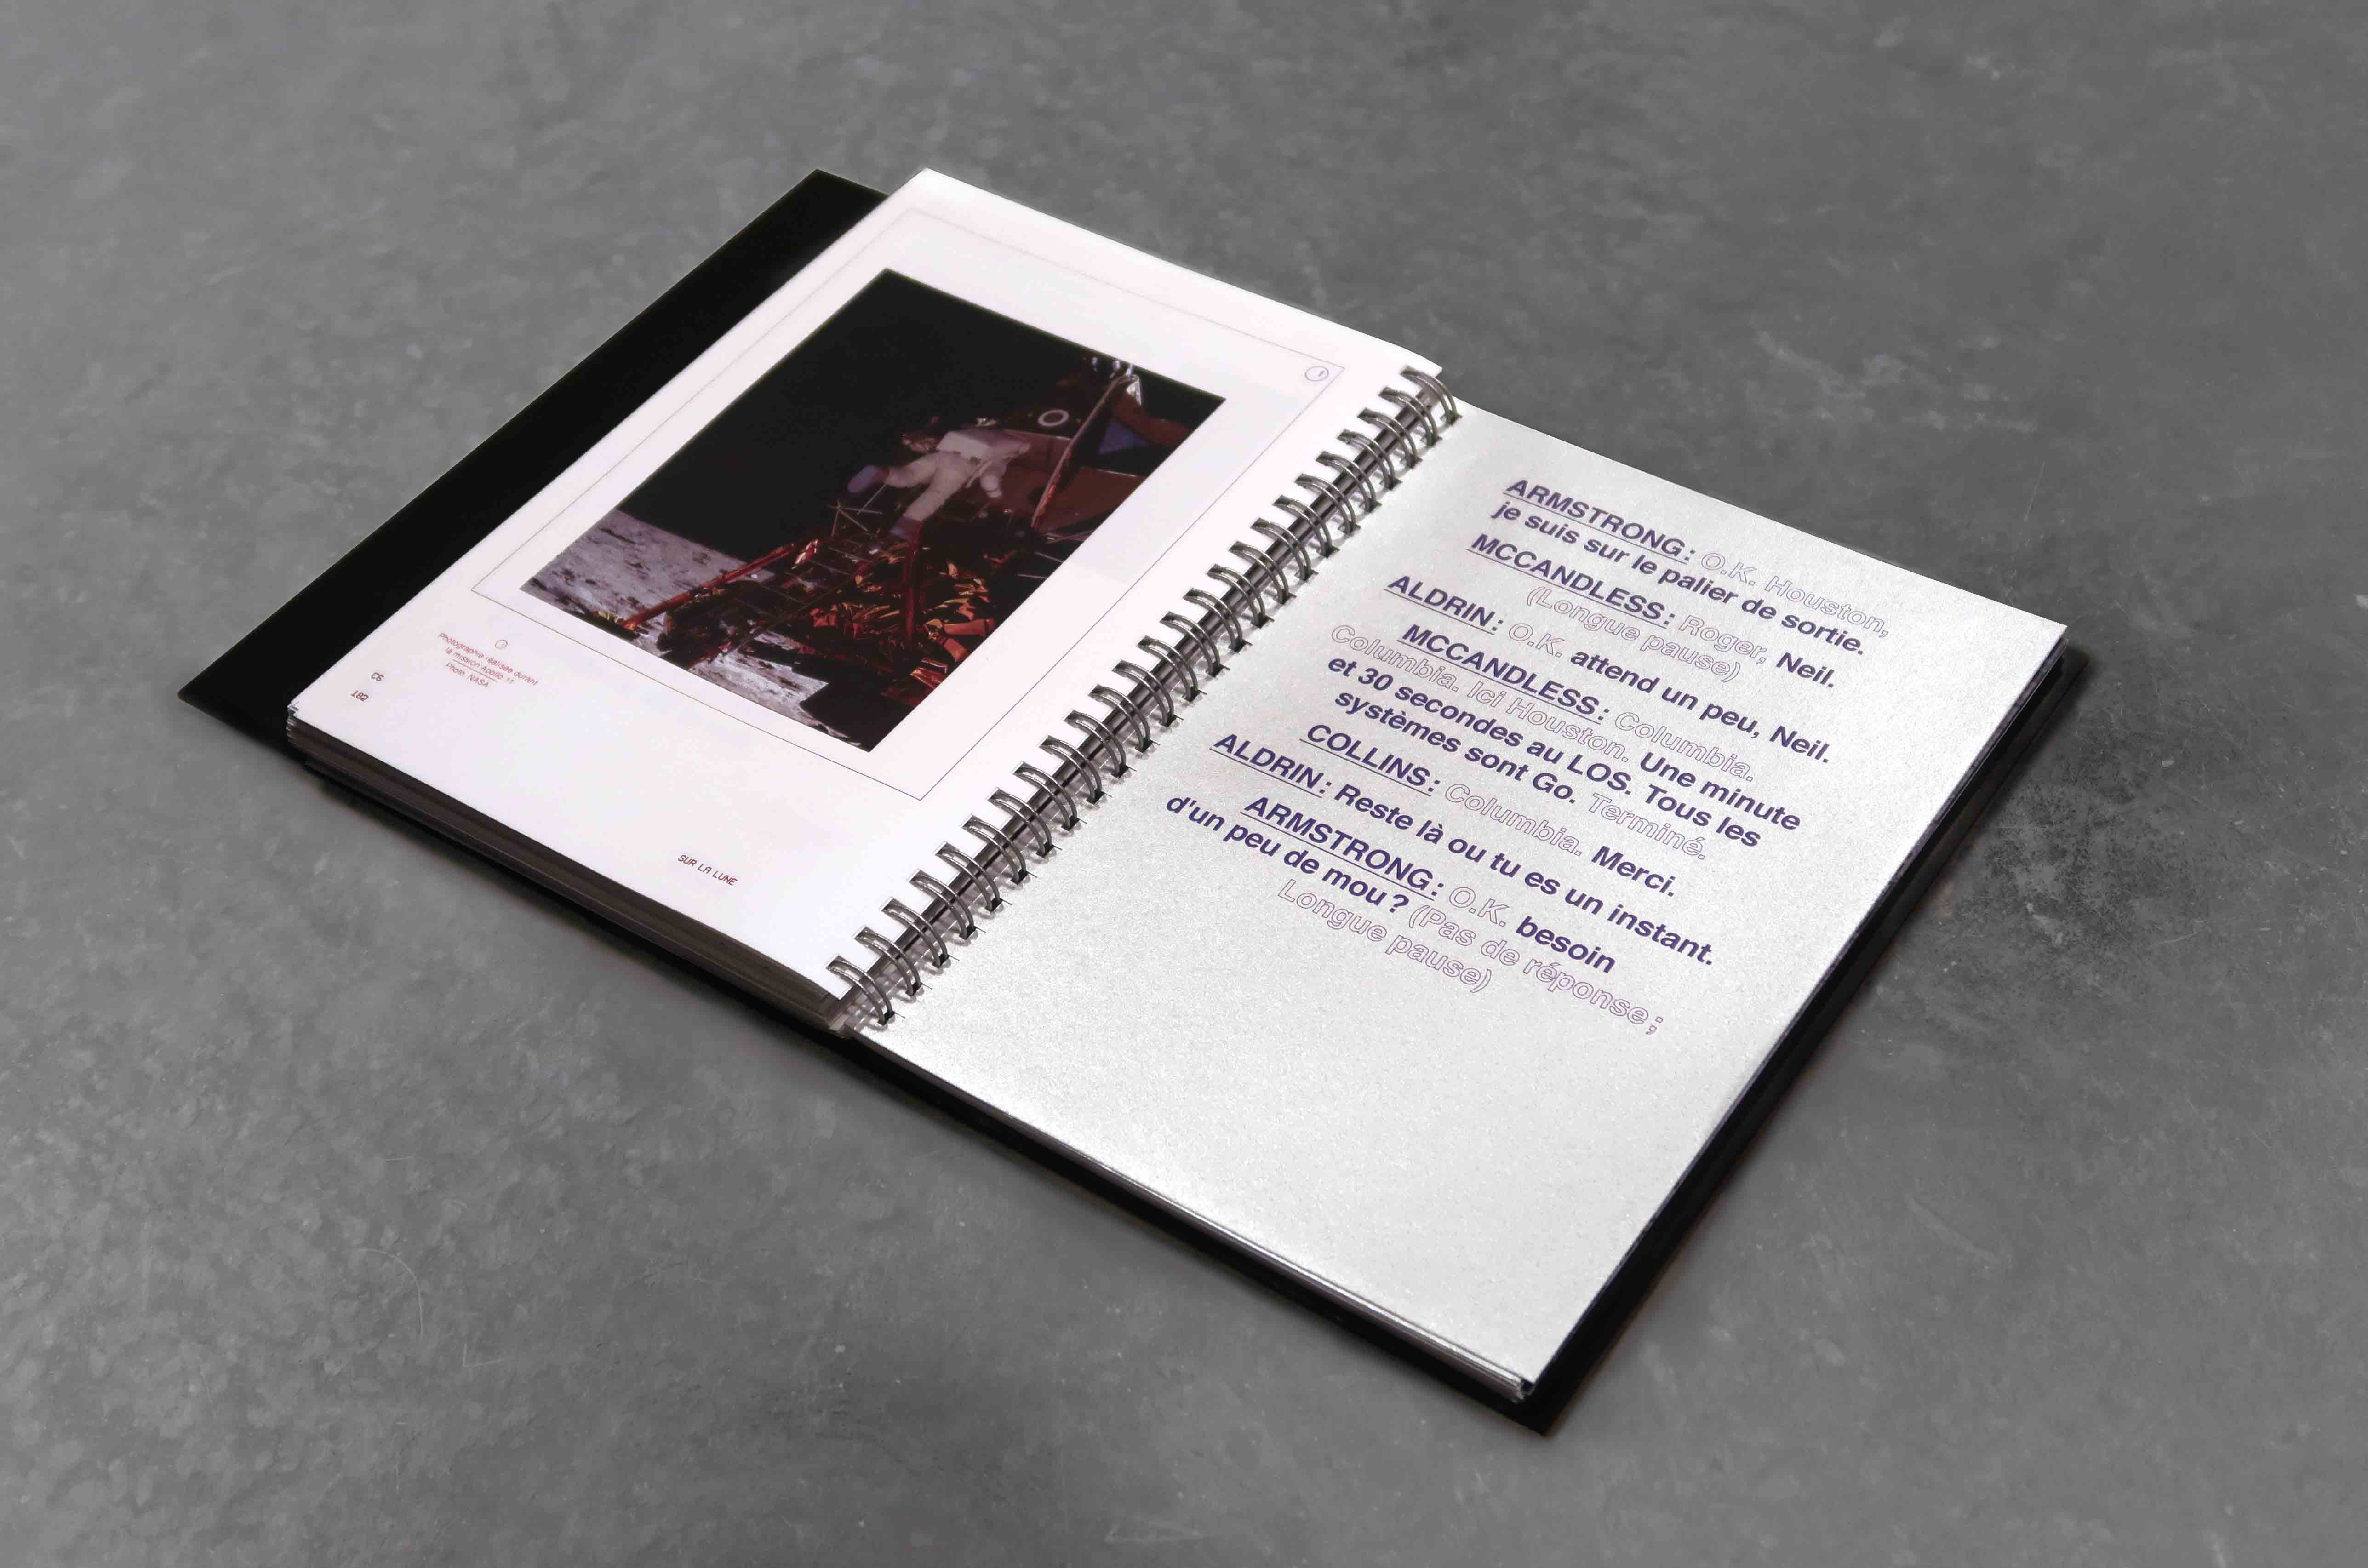 1
1
Photographie réalisée durant
la mission Apollo 11
Photo. NASA
C6
182
SUR LA LUNE
ARMSTRONG : O.K. Houston,
je suis sur le palier de sortie.
MCCANDLESS : Roger, Neil.
(Longue pause)
ALDRIN : O.K. attend un peu, Neil.
MCCANDLESS : Columbia.
Columbia. Ici Houston. Une minute
et 30 secondes au LOS. Tous les
systèmes sont Go. Terminé.
COLLINS : Columbia. Merci.
ALDRIN : Reste là ou tu es un instant.
ARMSTRONG : O.K. besoin
d'un peu de mou ? (Pas de réponse ;
Longue pause)